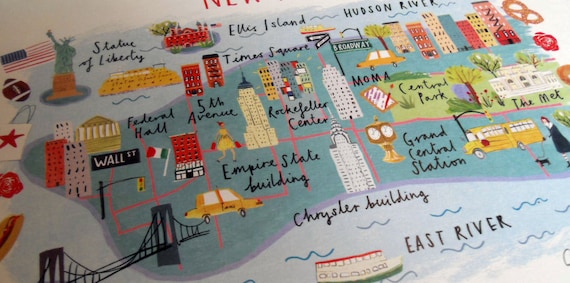 NEW
Ellis Island
HUDSON RIVER
Statue
of Liberty
Times Square
BROADWAY
MOMA
5th
Avenue
Rockefeller
Center
Central
Park
The Met
Federal
Hall
WALL ST
Empire State
building
Grand
Central
Station
Chrysler building
EAST RIVER
TAXI